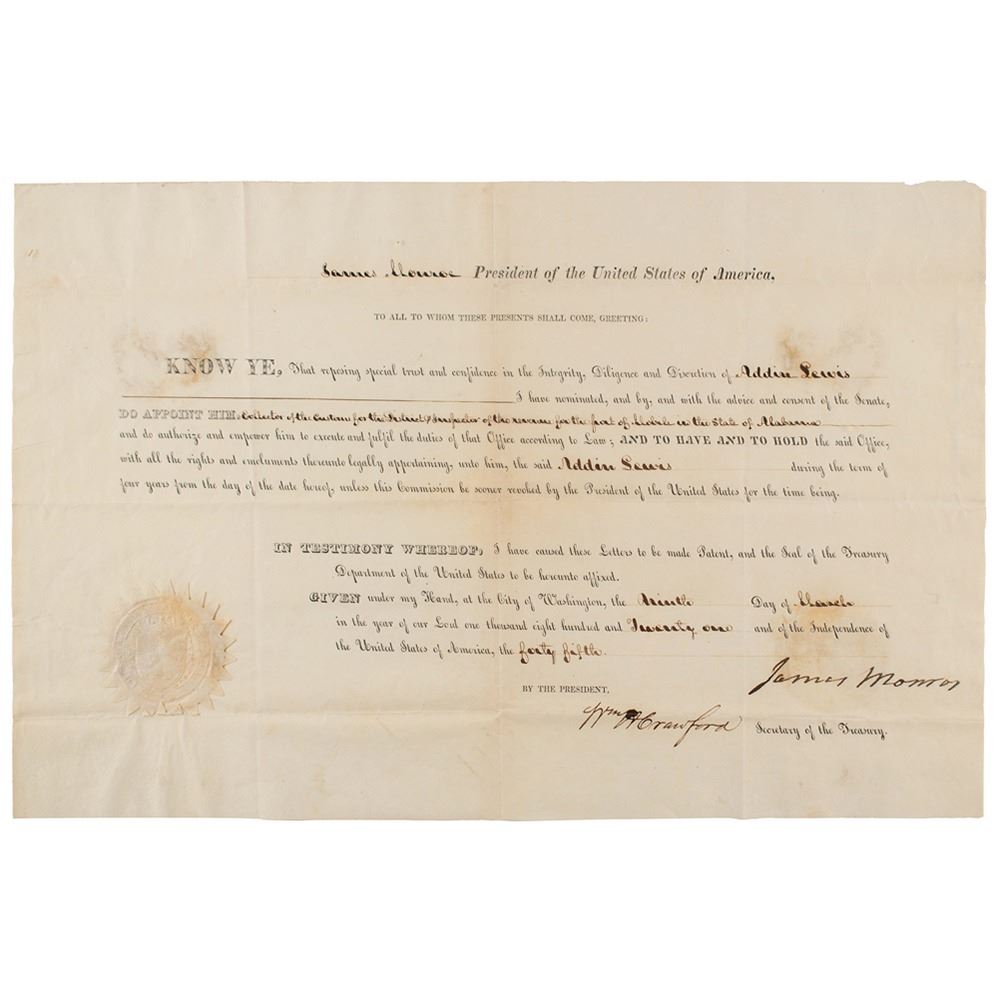 James Monroe President of the United States of America,
TO ALL TO WHOM THESE PRESENTS SHALL COME, GREETING:
KNOW YE, That reposing special trust and confidence in the Integrity, Diligence and Discretion of Addin Lewis
I have nominated, and by, and with the advice and consent of the Senate,
DO APPOINT HIM, Collector of the Customs for the District & Inspector of the revenue for the port of Mobile in the State of Alabama
and do authorize and empower him to execute and fulfil the duties of that Office according to Law; AND TO HAVE AND TO HOLD the said Office,
with all the rights and emoluments thereunto legally appertaining, unto him, the said Addin Lewis during the term of
four years from the day of the date hereof, unless this Commission be sooner revoked by the President of the United States for the time being.
IN TESTIMONY WHEREOF, I have caused these Letters to be made Patent, and the Seal of the Treasury
Department of the United States to be hereunto affixed.
GIVEN under my Hand, at the City of Washington, the Ninth Day of March
in the year of our Lord one thousand eight hundred and Twenty one and of the Independence of
the United States of America, the forty fifth.
James Monroe
BY THE PRESIDENT,
Wm H Crawford Secretary of the Treasury.